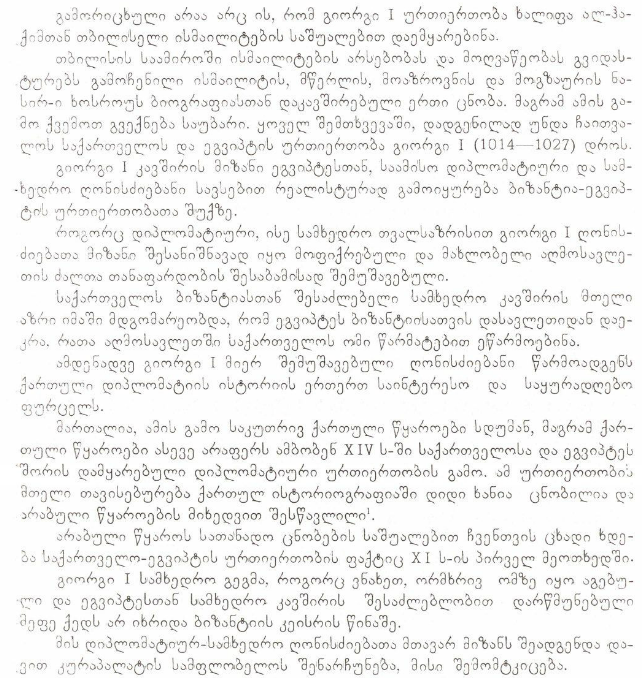 გამორიცხული არაა არც ის, რომ გიორგი I ურთიერთობა ხალიფა ალ-ჰა-
ქიმთან თბილისელი ისმაილიტების საშუალებით დაემყარებინა.
თბილისის საამიროში ისმაილიტების არსებობას და მოღვაწეობას გვიდას-
ტურებს გამოჩენილი ისმაილიტის, მწერლის, მოაზროვნის და მოგზაურის ნა-
სირ-ი ხოსროუს ბიოგრაფიასთან დაკავშირებული ერთი ცნობა. მაგრამ ამის გა-
მო ქვემოთ გვექნება საუბარი. ყოველ შემთხვევაში, დადგენილად უნდა ჩაითვა-
ლოს საქართველოს და ეგვიპტის ურთიერთობა გიორგი I (1014—1027) დროს.
გიორგი I კავშირის მიზანი ეგვიპტესთან, საამისო დიპლომატიური და სამ-
ხედრო ღონისძიებანი სავსებით რეალისტურად გამოიყურება ბიზანტია-ეგვიპ-
ტის ურთიერთობათა შუქზე.
როგორც დიპლომატიური, ისე სამხედრო თვალსაზრისით გიორგი I ღონის-
ძიებათა მიზანი შესანიშნავად იყო მოფიქრებული და მახლობელი აღმოსავლე-
თის ძალთა თანაფარდობის შესაბამისად შემუშავებული.
საქართველოს ბიზანტიასთან შესაძლებელი სამხედრო კავშირის მთელი
აზრი იმაში მდგომარეობდა, რომ ეგვიპტეს ბიზანტიისათვის დასავლეთიდან დაე-
კრა, რათა აღმოსავლეთში საქართველოს ომი წარმატებით ეწარმოებინა.
ამდენადვე გიორგი I მიერ შემუშავებული ღონისძიებანი წარმოადგენს
ქართული დიპლომატიის ისტორიის ერთერთ საინტერესო და საყურადღებო
ფურცელს.
მართალია, ამის გამო საკუთრივ ქართული წყაროები სდუმან, მაგრამ ქარ-
თული წყაროები ასევე არაფერს ამბობენ XIV ს-ში საქართველოსა და ეგვიპტეს
შორის დამყარებული დიპლომატიური ურთიერთობის გამო. ამ ურთიერთობის
მთელი თავისებურება ქართულ ისტორიოგრაფიაში დიდი ხანია ცნობილია და
არაბული წყაროების მიხედვით შესწავლილი¹.
არაბული წყაროს სათანადო ცნობების საშუალებით ჩვენთვის ცხადი ხდე-
ბა საქართველო-ეგვიპტის ურთიერთობის ფაქტიც XI ს-ის პირველ მეოთხედში.
გიორგი I სამხედრო გეგმა, როგორც ვნახეთ, ორმხრივ ომზე იყო აგებუ-
ლი და ეგვიპტესთან სამხედრო კავშირის შესაძლებლობით დარწმუნებული
მეფე ქედს არ იხრიდა ბიზანტიის კეისრის წინაშე.
მის დიპლომატიურ-სამხედრო ღონისძიებათა მთავარ მიზანს შეადგენდა და-
ვით კურაპალატის სამფლობელოს შენარჩუნება, მისი შემომტკიცება.